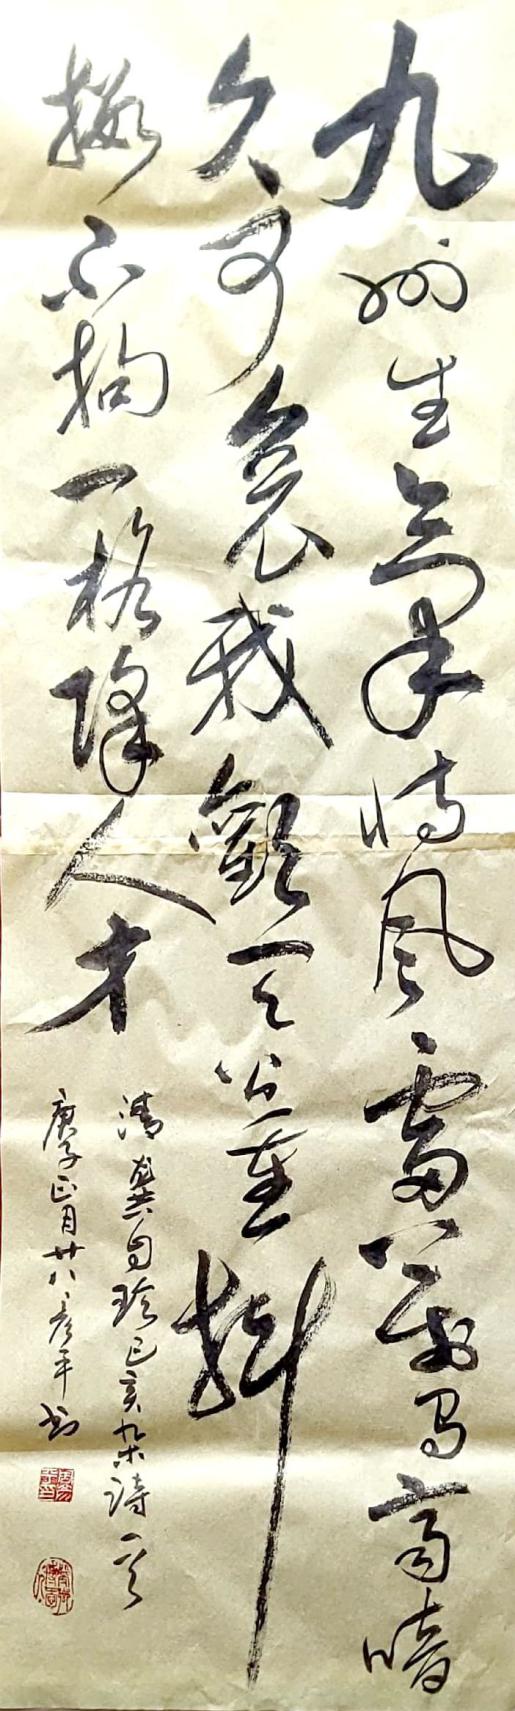 九州生气恃风雷万马齐喑
究可哀我劝天公重抖
擞不拘一格降人才
清龚自珍己亥杂诗一首
庚子正月廿八彦平书